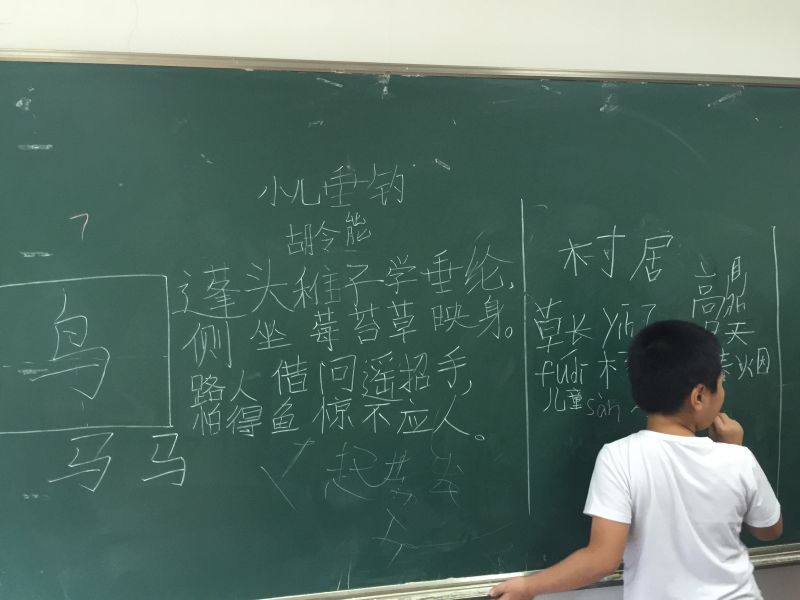 鸟
马 马
小儿垂钓
胡令能
蓬头稚子学垂纶,
侧坐莓苔草映身。
路人借问遥招手,
怕得鱼惊不应人。
村居
高鼎
草长 yīn 天
fúdī 烟
儿童 sàn